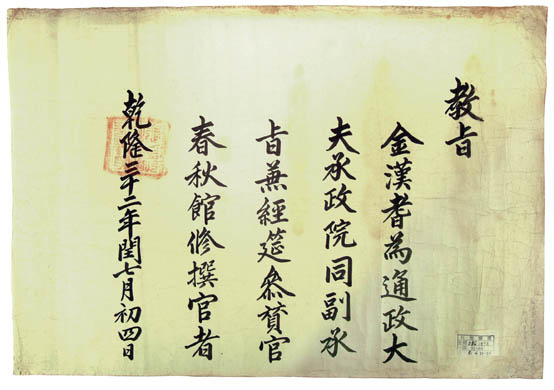 教旨
金漢耆為通政大
夫承政院同副承
旨兼經筵叅贊官
春秋館修撰官者
乾隆三十二年閏七月初四日